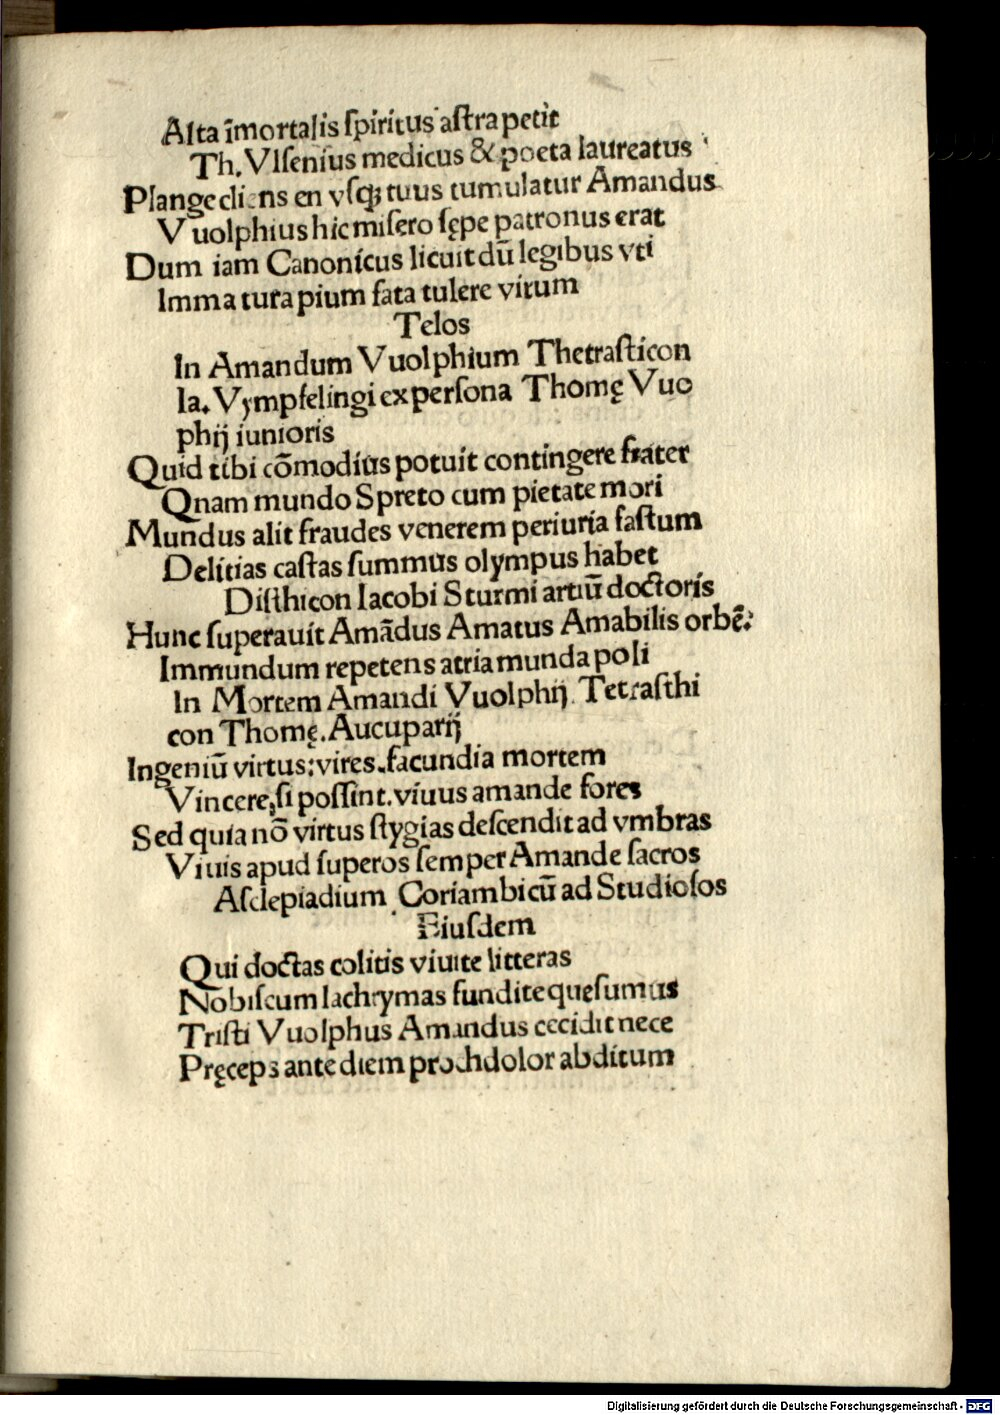 Alta īmortalis ſpiritus aſtra petit
Th. Vlſenius medicus & poeta laureatus
Plange cliens en vſqꝫ tuus tumulatur Amandus
Vuolphius hic miſero ſępe patronus erat
Dum iam Canonicus licuit dū legibus vti
Imma tura pium fata tulere virum
Telos
In Amandum Vuolphium Thetraſticon
Ia. Vympfelingi ex perſona Thomę Vuo
phij iunioris
Quid tibi cōmodius potuit contingere frater
Qnam mundo Spreto cum pietate mori
Mundus alit fraudes venerem periuria faſtum
Delitias caſtas ſummus olympus habet
Diſthicon Iacobi Sturmi artiū doctoris
Hunc ſuperauit Amādus Amatus Amabilis orbē:
Immundum repetens atria munda poli
In Mortem Amandi Vuolphij. Tetraſthi
con Thomę. Aucuparij
Ingeniū virtus: vires. facundia mortem
Vincere, ſi poſſint. viuus amande fores
Sed quia nō virtus ſtygias deſcendit ad vmbras
Viuis apud ſuperos ſemper Amande ſacros
Aſclepiadium Coriambicū ad Studioſos
Eiuſdem
Qui doctas colitis viuite litteras
Nobiſcum lachrymas fundite queſumus
Triſti Vuolphus Amandus cecidit nece
Pręceps ante diem proch dolor abditum
Digitalisierung gefördert durch die Deutsche Forschungsgemeinschaft - DFG